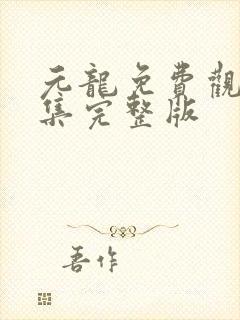 元龍免費觀
集完整版
吾作